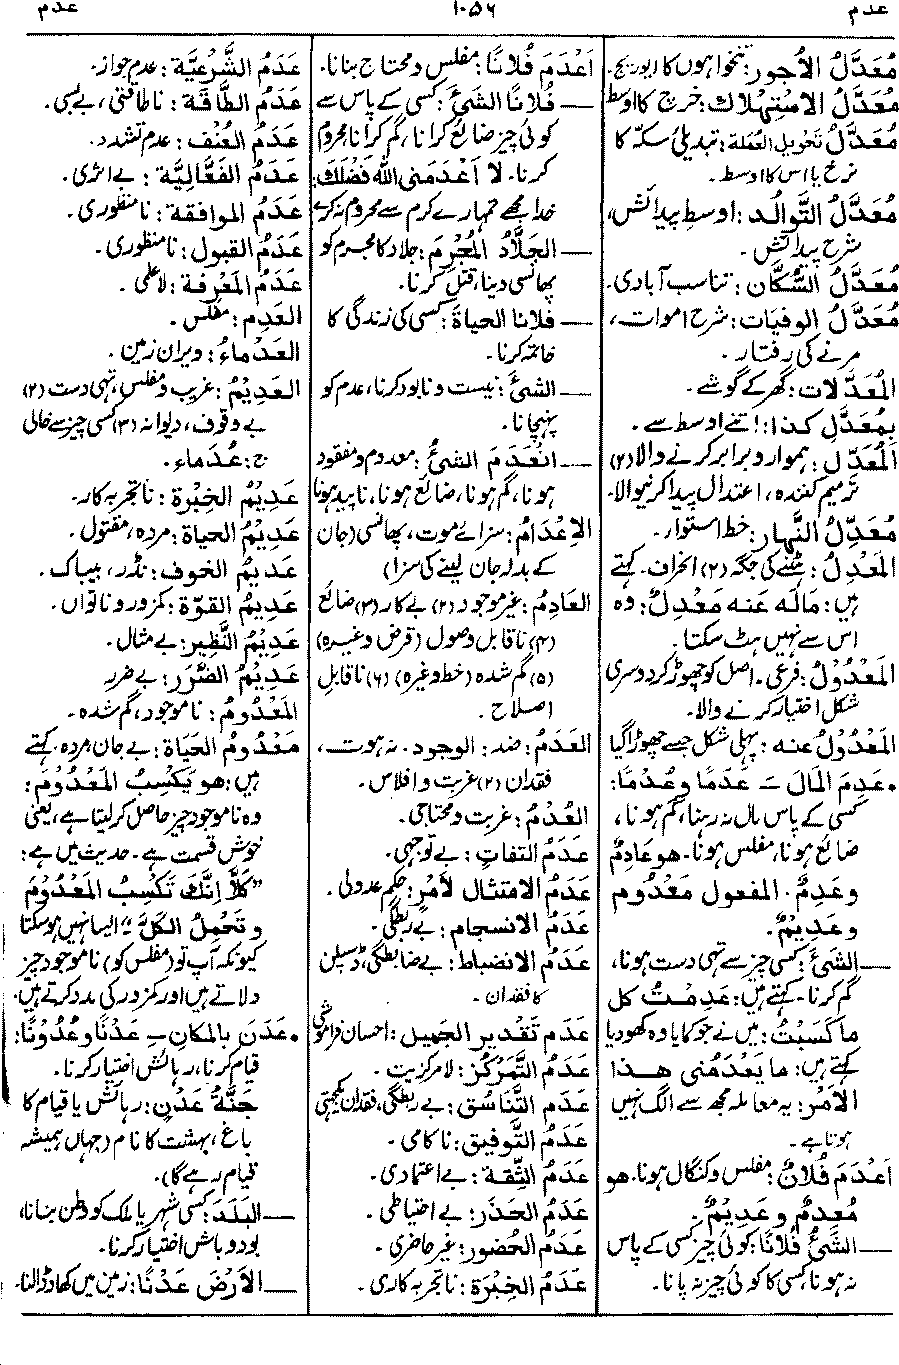 عدم
۱۰۵۶
عدم
مُعَدَّلُ الأجور: تنخواہوں کا ایوریج۔
مُعَدَّلُ الاسْتِهْلاك: خرچ کا اوسط
مُعَدَّلُ تَحْوِيلِ العُمْلة: تبدیلیٔ سکہ کا
نرخ یا اس کا اوسط۔
مُعَدَّلُ التَّوالُد: اوسطِ پیدائش،
شرح پیدائش۔
مُعَدَّلُ السُّكَّان: تناسب آبادی۔
مُعَدَّلُ الوفيَات: شرح اموات،
مرنے کی رفتار۔
المُعَدَّلات: گھر کے گوشے۔
بِمُعَدَّلِ كذا: اتنے اوسط سے۔
المُعَدِّل: ہموار و برابر کرنے والا (۲)
ترمیم کنندہ، اعتدال پیدا کرنیوالا۔
مُعَدِّلُ النَّهار: خط استوار۔
المَعْدِلُ: ہٹنے کی جگہ (۲) انحراف۔ کہتے
ہیں: مَالَه عنه مَعْدِلٌ: وہ
اس سے نہیں ہٹ سکتا۔
المَعْدُوْلُ: فرعی۔ اصل کو چھوڑ کر دوسری
شکل اختیار کرنے والا۔
المَعْدُوْلُ عنه: پہلی شکل جسے چھوڑا گیا
• عَدِمَ المَالَ ــَ عَدَمًا وعُدْمًا:
کسی کے پاس مال نہ رہنا، گم ہونا،
ضائع ہونا، مفلس ہونا۔ هو عَادِمٌ
وعَدِمٌ۔ المفعول مَعْدُوم
وعَدِيمٌ۔
ــــ الشئَ: کسی چیز سے تہی دست ہونا،
گم کرنا۔ کہتے ہیں: عَدِمْتُ كل
ما كَسَبْتُ: میں نے جو کمایا وہ کھو دیا
کہتے ہیں: ما يَعْدَمُنى هذا
الأمْرُ: یہ معاملہ مجھ سے الگ نہیں
ہوتا ہے۔
أَعْدَمَ فُلانٌ: مفلس وکنگال ہونا۔ هو
مُعدِمٌ وعَدِيمٌ۔
ــــ الشئُ فُلانًا: کوئی چیز کسی کے پاس
نہ ہونا، کسی کا کوئی چیز نہ پانا۔
أَعْدَمَ فُلانًا: مفلس و محتاج بنانا۔
ــــ فُلانًا الشئَ: کسی کے پاس سے
کوئی چیز ضائع کرانا، گم کرانا محروم
کرنا۔ لا أعْدَمَنى الله فَضْلَكَ:
خدا مجھے تمہارے کرم سے محروم نہ کرے
ــــ الجَلَّادُ المُجْرِمَ: جلاد کا مجرم کو
پھانسی دینا، قتل کرنا۔
ــــ فلانا الحياةَ: کسی کی زندگی کا
خاتمہ کرنا۔
ــــ الشئَ: نیست و نابود کرنا، عدم کو
پہنچانا۔
ــــ انْعَدَمَ الشئُ: معدوم و مفقود
ہونا، گم ہونا، ضائع ہونا، ناپید ہونا
الإعْدَامُ: سزائے موت، پھانسی (جان
کے بدلہ جان لینے کی سزا)
العَادِمُ: غیر موجود (۲) بے کار (۳) ضائع
(۴) ناقابل وصول (قرض وغیرہ)
(۵) گم شدہ (خط وغیرہ) (۶) ناقابلِ
اصلاح۔
العَدَمُ: ضد: الوجود۔ نہ ہوت،
فقدان (۲) غربت و افلاس۔
العُدْمُ: غربت و محتاجی۔
عَدَمُ التفاتٍ: بے توجہی۔
عَدَمُ الامتثال لأمْرٍ: حکم عدولی۔
عَدَمُ الانسجام: بے ربطگی۔
عَدَمُ الانضباط: بے ضابطگی، ڈسپلن
کا فقدان۔
عَدَمُ تَقْدِيرِ الجميل: احسان فراموشی
عَدَمُ التَّمَرْكُز: لامرکزیت۔
عَدَمُ التَّنَاسُق: بے ربطگی، فقدان یکجہتی
عَدَمُ التَّوفيق: ناکامی۔
عَدَمُ الثِّقَة: بے اعتمادی۔
عَدَمُ الحَذَر: بے احتیاطی۔
عَدَمُ الحُضور: غیر حاضری۔
عَدَمُ الخِبْرَة: ناتجربہ کاری۔
عَدَمُ الشَّرْعِيَّة: عدم جواز۔
عَدَمُ الطَّاقَة: ناطاقتی، بے بسی۔
عَدَمُ العُنْف: عدم تشدد۔
عَدَمُ الفَعَّالِيَّة: بے اثری۔
عَدَمُ الموافقة: نامنظوری۔
عَدَمُ القبول: نامنظوری۔
عَدَمُ المَعْرِفَة: لاعلمی۔
العَدِم: مفلس۔
العَدْمَاءُ: ویران زمین۔
العَدِيمُ: غریب و مفلس، تہی دست (۲)
بے وقوف، دیوانہ (۳) کسی چیز سے خالی
ج: عُدَمَاء۔
عَدِيْمُ الخِبْرَة: ناتجربہ کار۔
عَدِيمُ الحياة: مردہ، مقتول۔
عَدِيمُ الخوف: نڈر، بیباک۔
عَدِيمُ القوّة: کمزور و ناتواں۔
عَدِيمُ النَّظِير: بے مثال۔
عَدِيمُ الضَّرَر: بے ضرر
المَعْدُومُ: ناموجود، گم شدہ۔
مَعْدُومُ الحَيَاة: بے جان، مردہ۔ کہتے
ہیں: هو يَكْسِبُ المَعْدُوْمَ:
وہ ناموجود چیز حاصل کر لیتا ہے، یعنی
خوش قسمت ہے۔ حدیث میں ہے:
”كَلَّا إِنَّكَ تَكْسِبُ المَعْدُومَ
وتَحْمِلُ الكَلَّ“ ایسا نہیں ہو سکتا
کیونکہ آپ تو (مفلس کو) ناموجود چیز
دلاتے ہیں اور کمزور کی مدد کرتے ہیں۔
• عَدَنَ بالمكانِ ــِ عَدْنًا وعُدُونًا:
قیام کرنا، رہائش اختیار کرنا۔
جَنَّةُ عَدْنٍ: رہائش یا قیام کا
باغ، بہشت کا نام (جہاں ہمیشہ
قیام رہے گا)۔
ــــ البَلَدَ: کسی شہر یا ملک کو وطن بنانا،
بود و باش اختیار کرنا۔
ــــ الأرْضَ عَدْنًا: زمین میں کھاد ڈالنا۔